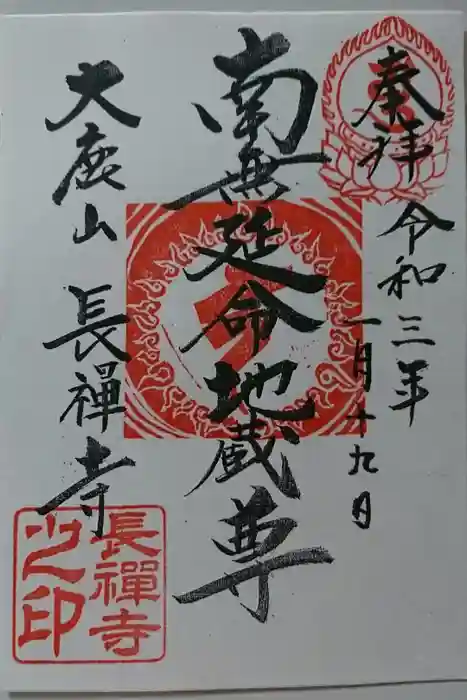 奉拝
令和三年
一月十九日
南無延命地蔵尊
大鹿山 長禅寺
長禪寺
之印